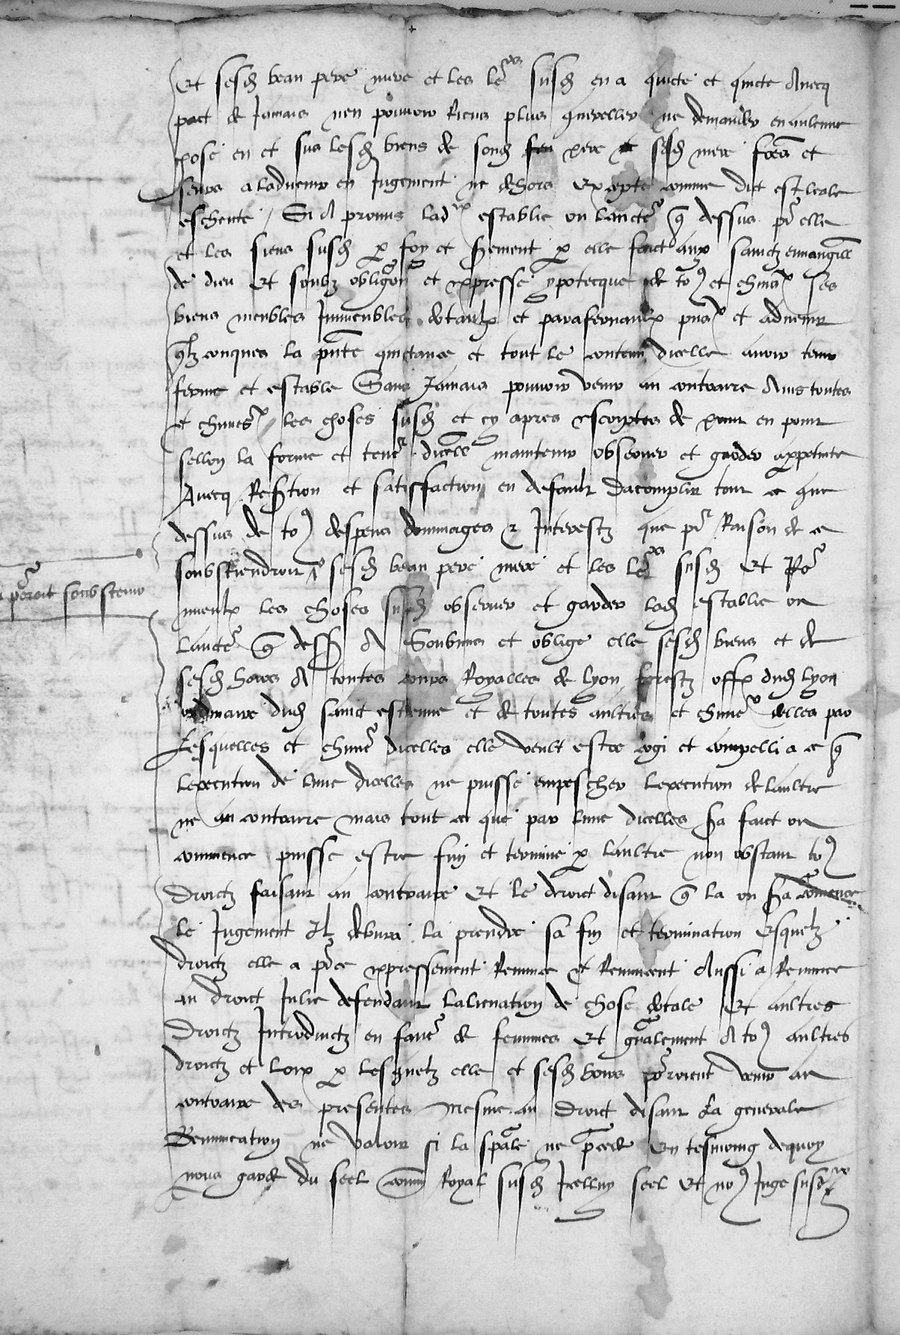 Et sesd beau pere mere et les lrs susd en a quicte et quicte Avecq
pact de Jamais nen pouvoir Riens plus quereller ne demander en aulcune
chose en et sus lesd biens de sond feu pere et sesd mere freres et
seurs a ladvenir en Jugement ne dehors Excepte comme dict est leale
escheute / Si A promis lad establie on laucte q dessus pr elle
et les siens susd p foy et serment p elle faict aux sainctz euvangilles
de dieu Et soubz obligon et expresse ypotecque de to et chuns ses
biens meubles Immeubles dotaulx et parafernaulx pns et advenir
qlzconques la pnte quictance et tout le contenu dicelle avoir tenir
ferme et estable Sans Jamais pouvoir venir au contraire Ains toutes
et chunes les choses susd et cy apres escriptes de point en point
sellon la forme et teneur dicelle maintenir observer et garder
Avecq Restion et satisfaction en default dacomplir tout ce que
dessus de to despens dommages et Interestz que pr Raison de ce
soubstiendroit sesd beau pere mere et les lrs susd Et Po
porroit soubstenir
mieulx les choses susd observer et garder lad establie on
laucte q dess A Soubmis et oblige elle sesd biens et de
sesd hoirs A toutes cours Royalles de lyon forestz offx dud lyon
ordinaire dud sainct estienne et de toutes aultres et chune delles par
Lesquelles et chune dicelles elle veult estre cogi et compelli a ce q
lexecution de lune dicelles ne puisse empescher lexecution de laultre
ne au contraire mais tout ce que par lune dicelles sa faict on
commence puisse estre finy et termine p laultre non obstant to
droictz faisant au contraire Et le droict disant q la on sa commence
le Jugement Il debvra la prendre sa fin et termination Esquelz
droictz elle a pce expressement Renunce et Renuncent Aussi a Renunce
au droict Julie defendant lalienation de chose dotale Et aultres
Droictz Introduictz en faveur de femmes Et gnalement A to aultres
droictz et loix p lesquelz elle et sesd hoirs porroient venir au
contraire des presentes mesme au droict disant La generale
Renunciation ne valoir si la spale ne pcede En tesmoing dequoy
nous garde du seel comm Royal susd Icelluy seel Et no Juge susd